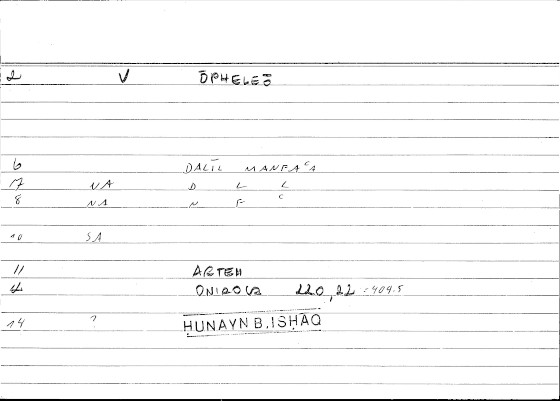 2 V ŌPHELEŌ
6 DALĪL MANFAᶜA
7 NA D L L
8 NA N F ᶜ
10 SA
11 ARTEM
4 ONIROCR 220,22 =409.5
14 ? HUNAYN B.ISHAQ